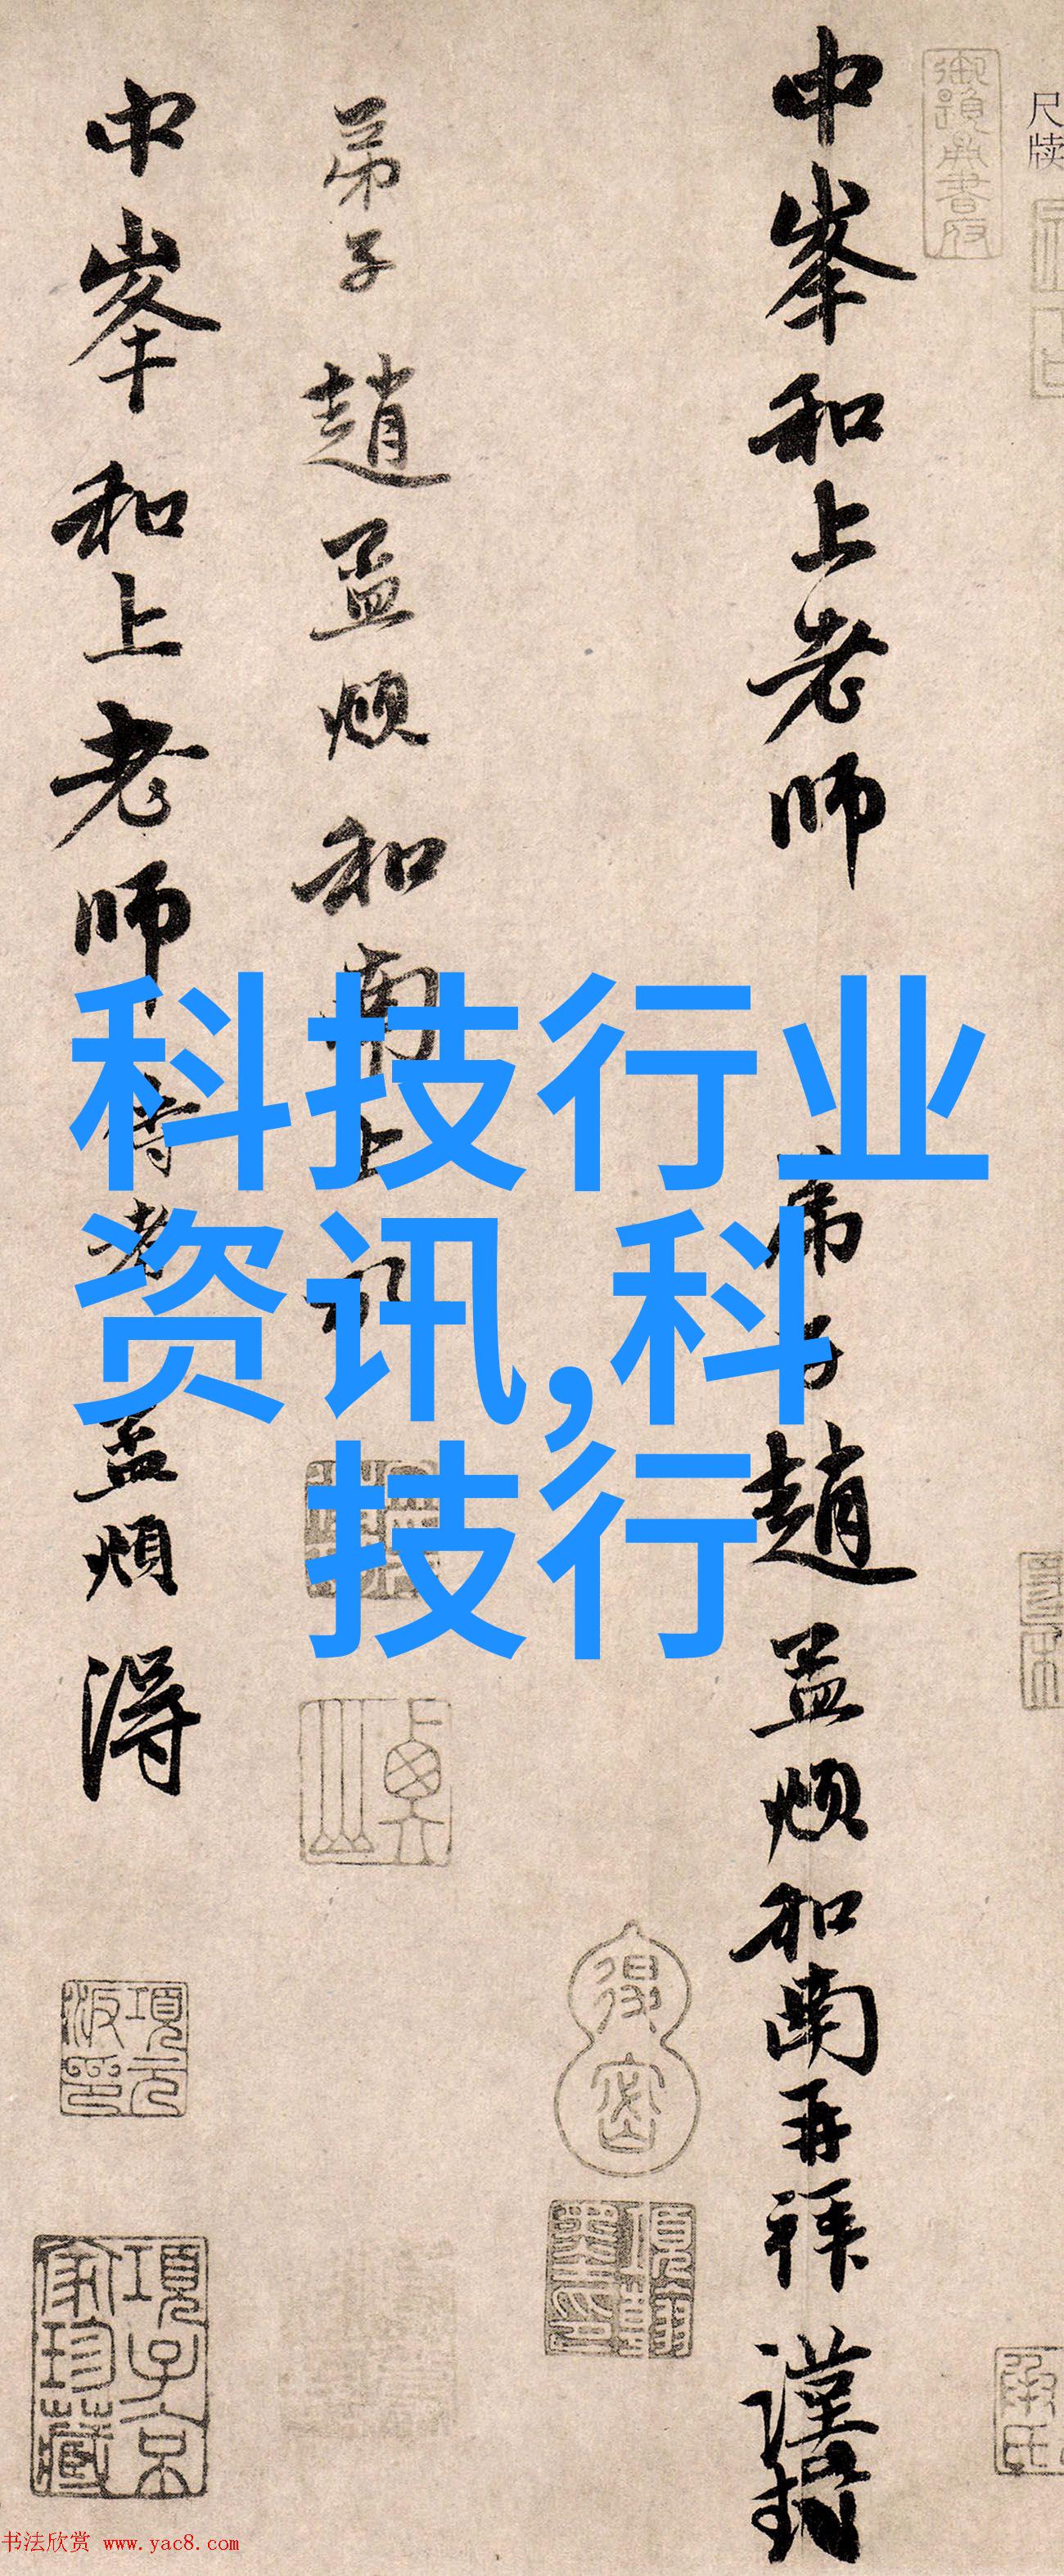 尺牍
中峯和上老师 弟子趙孟頫和南再拜 謹封
弟子趙孟頫和南上
中峯和上老师 孟頫
科技行业
资讯,科
技行
得密
項元汴印
項子京家珍藏
书法欣赏 www.yac8.com